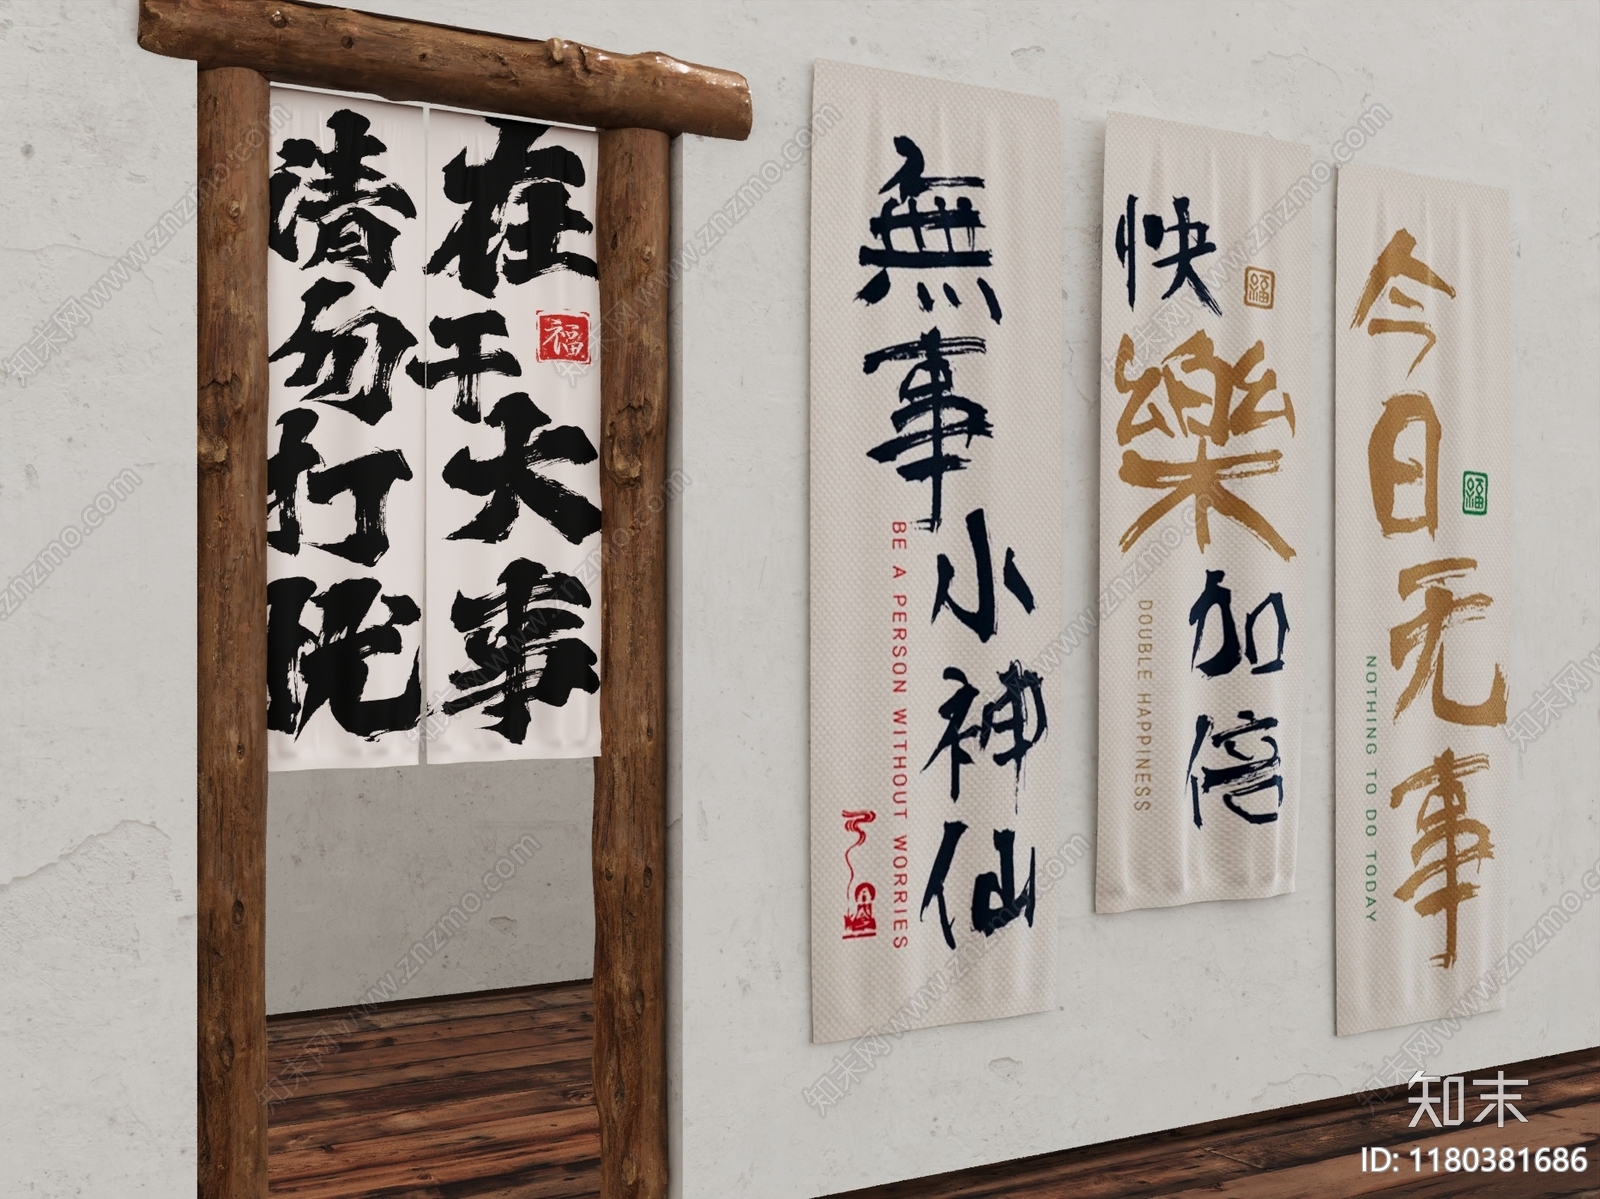 在干大事
福
请勿打扰
無事小神仙
BE A PERSON WITHOUT WORRIES
快樂加倍
福
DOUBLE HAPPINESS
今日无事
福
NOTHING TO DO TODAY
知末网www.znzmo.com
知末
ID: 1180381686